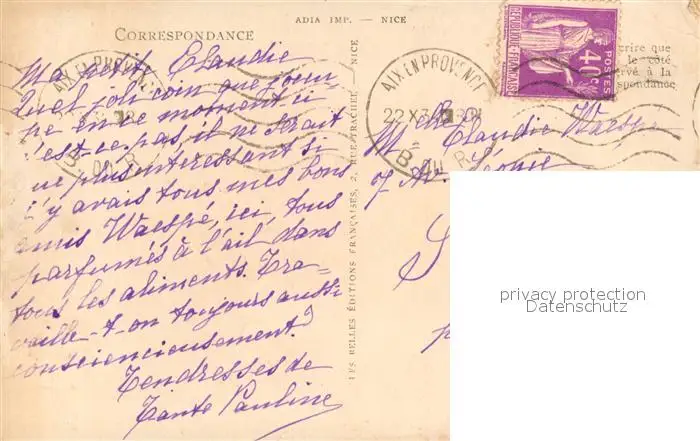 ADIA IMP. — NICE
CORRESPONDANCE
Ma petite Claudie
Quel joli coin que j'occu-
pe en ce moment-ci
n'est-ce pas, il ne serait
que plus intéressant si
j'y avais tous mes bons
amis Waespé, ici, tous
parfumés à l'ail dans
tous les aliments. Tra-
vaille-t-on toujours aussi
consciencieusement?
Tendresses de
Tante Pauline
LES BELLES ÉDITIONS FRANÇAISES, 2, RUE TRACHEL, NICE
AIX EN PROVENCE
AIX EN PROVENCE
22 X
B. DU R.
RÉPUBLIQUE FRANÇAISE
POSTES
40c
crire que
le côté
rvé à la
spondance
Melle Claudie Waespé
7 Av. Léonie
privacy protection
Datenschutz